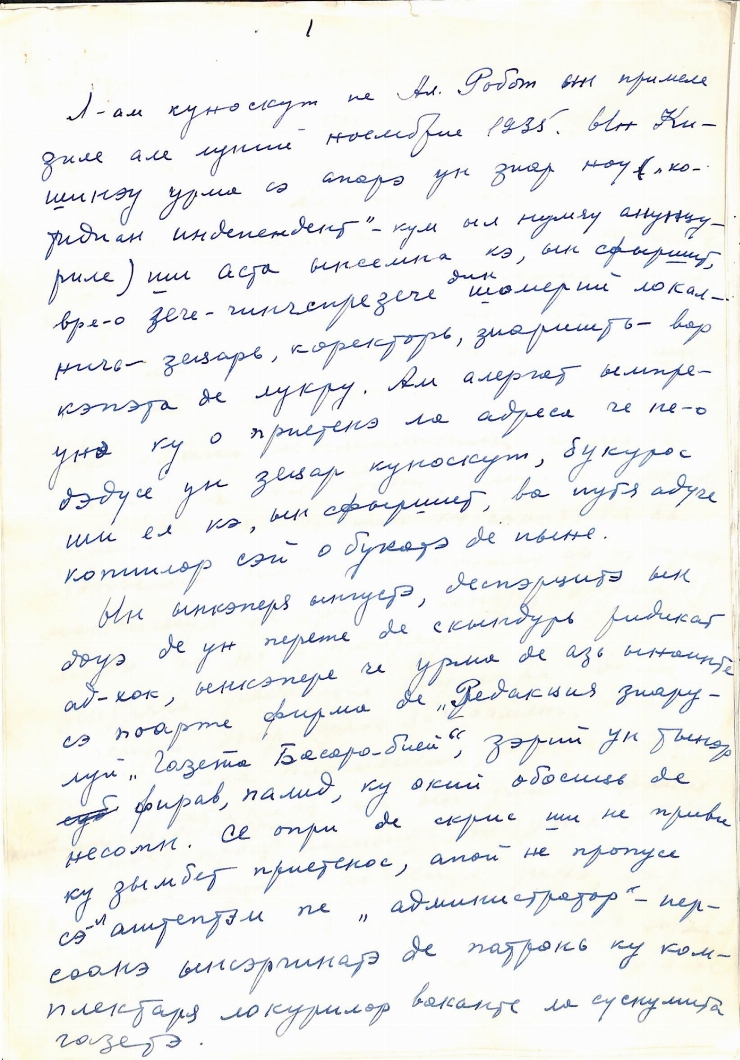 1
Л-ам куноскут пе Ал. Робот ын примеле
зиле але луний ноембрие 1935. Ын Ки-
шинэу урма сэ апарэ ун зиар ноу („ко-
тидиан индепендент" – кум ыл нумяу анунцу-
риле) ши аста ынсемна кэ, ын сфыршит,
вре-о зече-чинчспрезече дин шомерий локал-
ничь – зецарь, коректорь, зиаришть – вор
кэпэта де лукру. Ам алергат ымпре-
унэ ку о приетенэ ла адреса че не-о
дэдусе ун зецар куноскут, букурос
ши ел кэ, ын сфыршит, ва путя адуче
копиилор сэй о букатэ де пыне.
Ын ынкэперя ынгустэ, деспэрцитэ ын
доуэ де ун перете де скындурь ридикат
ад-хок, ынкэпере че урма де азь ынаинте
сэ поарте фирма де „Редакция зиару-
луй „Газета Басара-бией", зэрий ун тынэр
фирав, палид, ку окий обосиць де
несомн. Се опри де скрис ши не приви
ку зымбет приетенос, апой не пропусе
сэ-л аштептэм пе „администратор" – пер-
соанэ ынсэрчинатэ де патронь ку ком-
плектаря локурилорваканте ла сусnумита
газетэ.